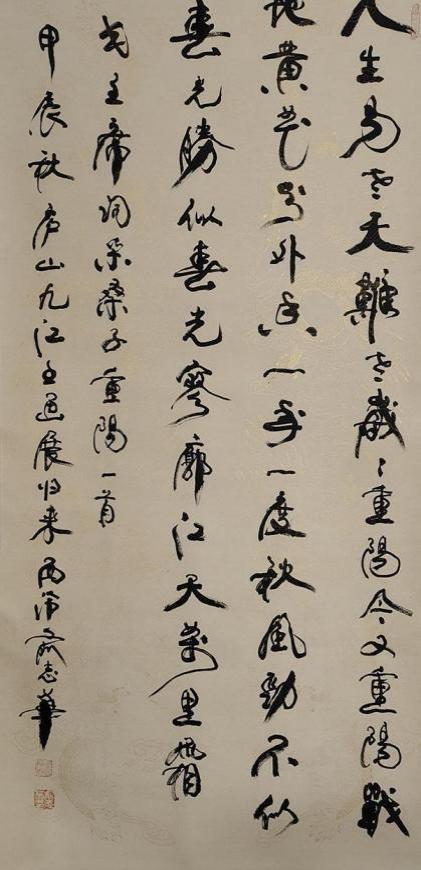 人生易老天難老歲〻重陽今又重陽戰
地黃花分外香一年一度秋風勁不似
春光勝似春光寥廓江天萬里霜
毛主席詞采桑子重陽一首
甲辰秋庐山九江主題展归来西泠志華